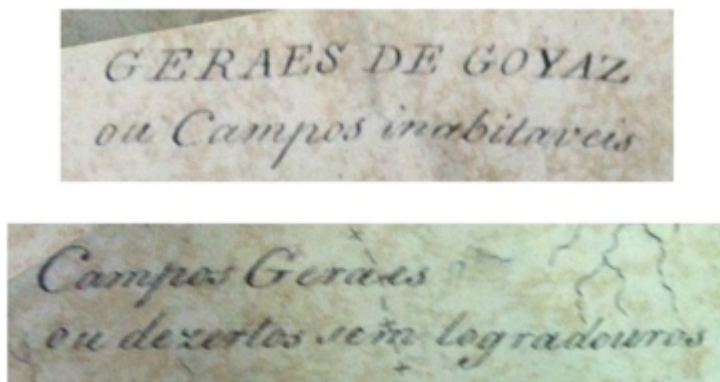 GERAES DE GOYAZ
ou Campos inabitaveis
Campos Geraes
ou dezertos sem logradouros